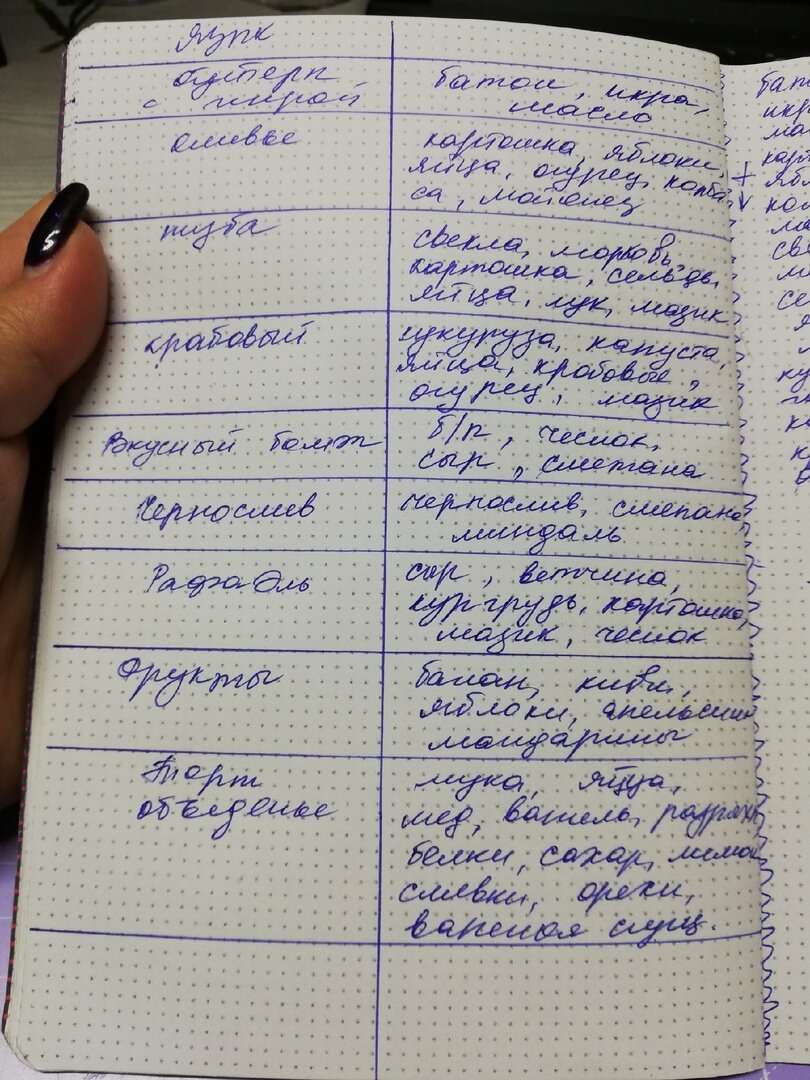 язык
бутерп
с икрой
батон, икра,
масло
оливье
картошка, яблоки,
яйца, огурец, колба
са, майонез
шуба
свекла, морковь,
картошка, сельдь,
яйца, лук, мазик
крабовый
кукуруза, капуста,
яйца, крабовые,
огурец, мазик
Вкусный бомж
б/п, чеснок,
сыр, сметана
Чернослив
чернослив, сметана,
миндаль
Рафаэль
сыр, ветчина,
кур грудь, картошка,
мазик, чеснок
Фрукты
банан, киви,
яблоки, апельсин
мандарины
Торт
объеденье
мука, яйца,
мед, ваниль, разрыхл
белки, сахар, лимон
сливки, орехи,
вареная сгущ.
бат
икр
ма
карт
+ ябл
v кол
ма
све
м
се
я
ку